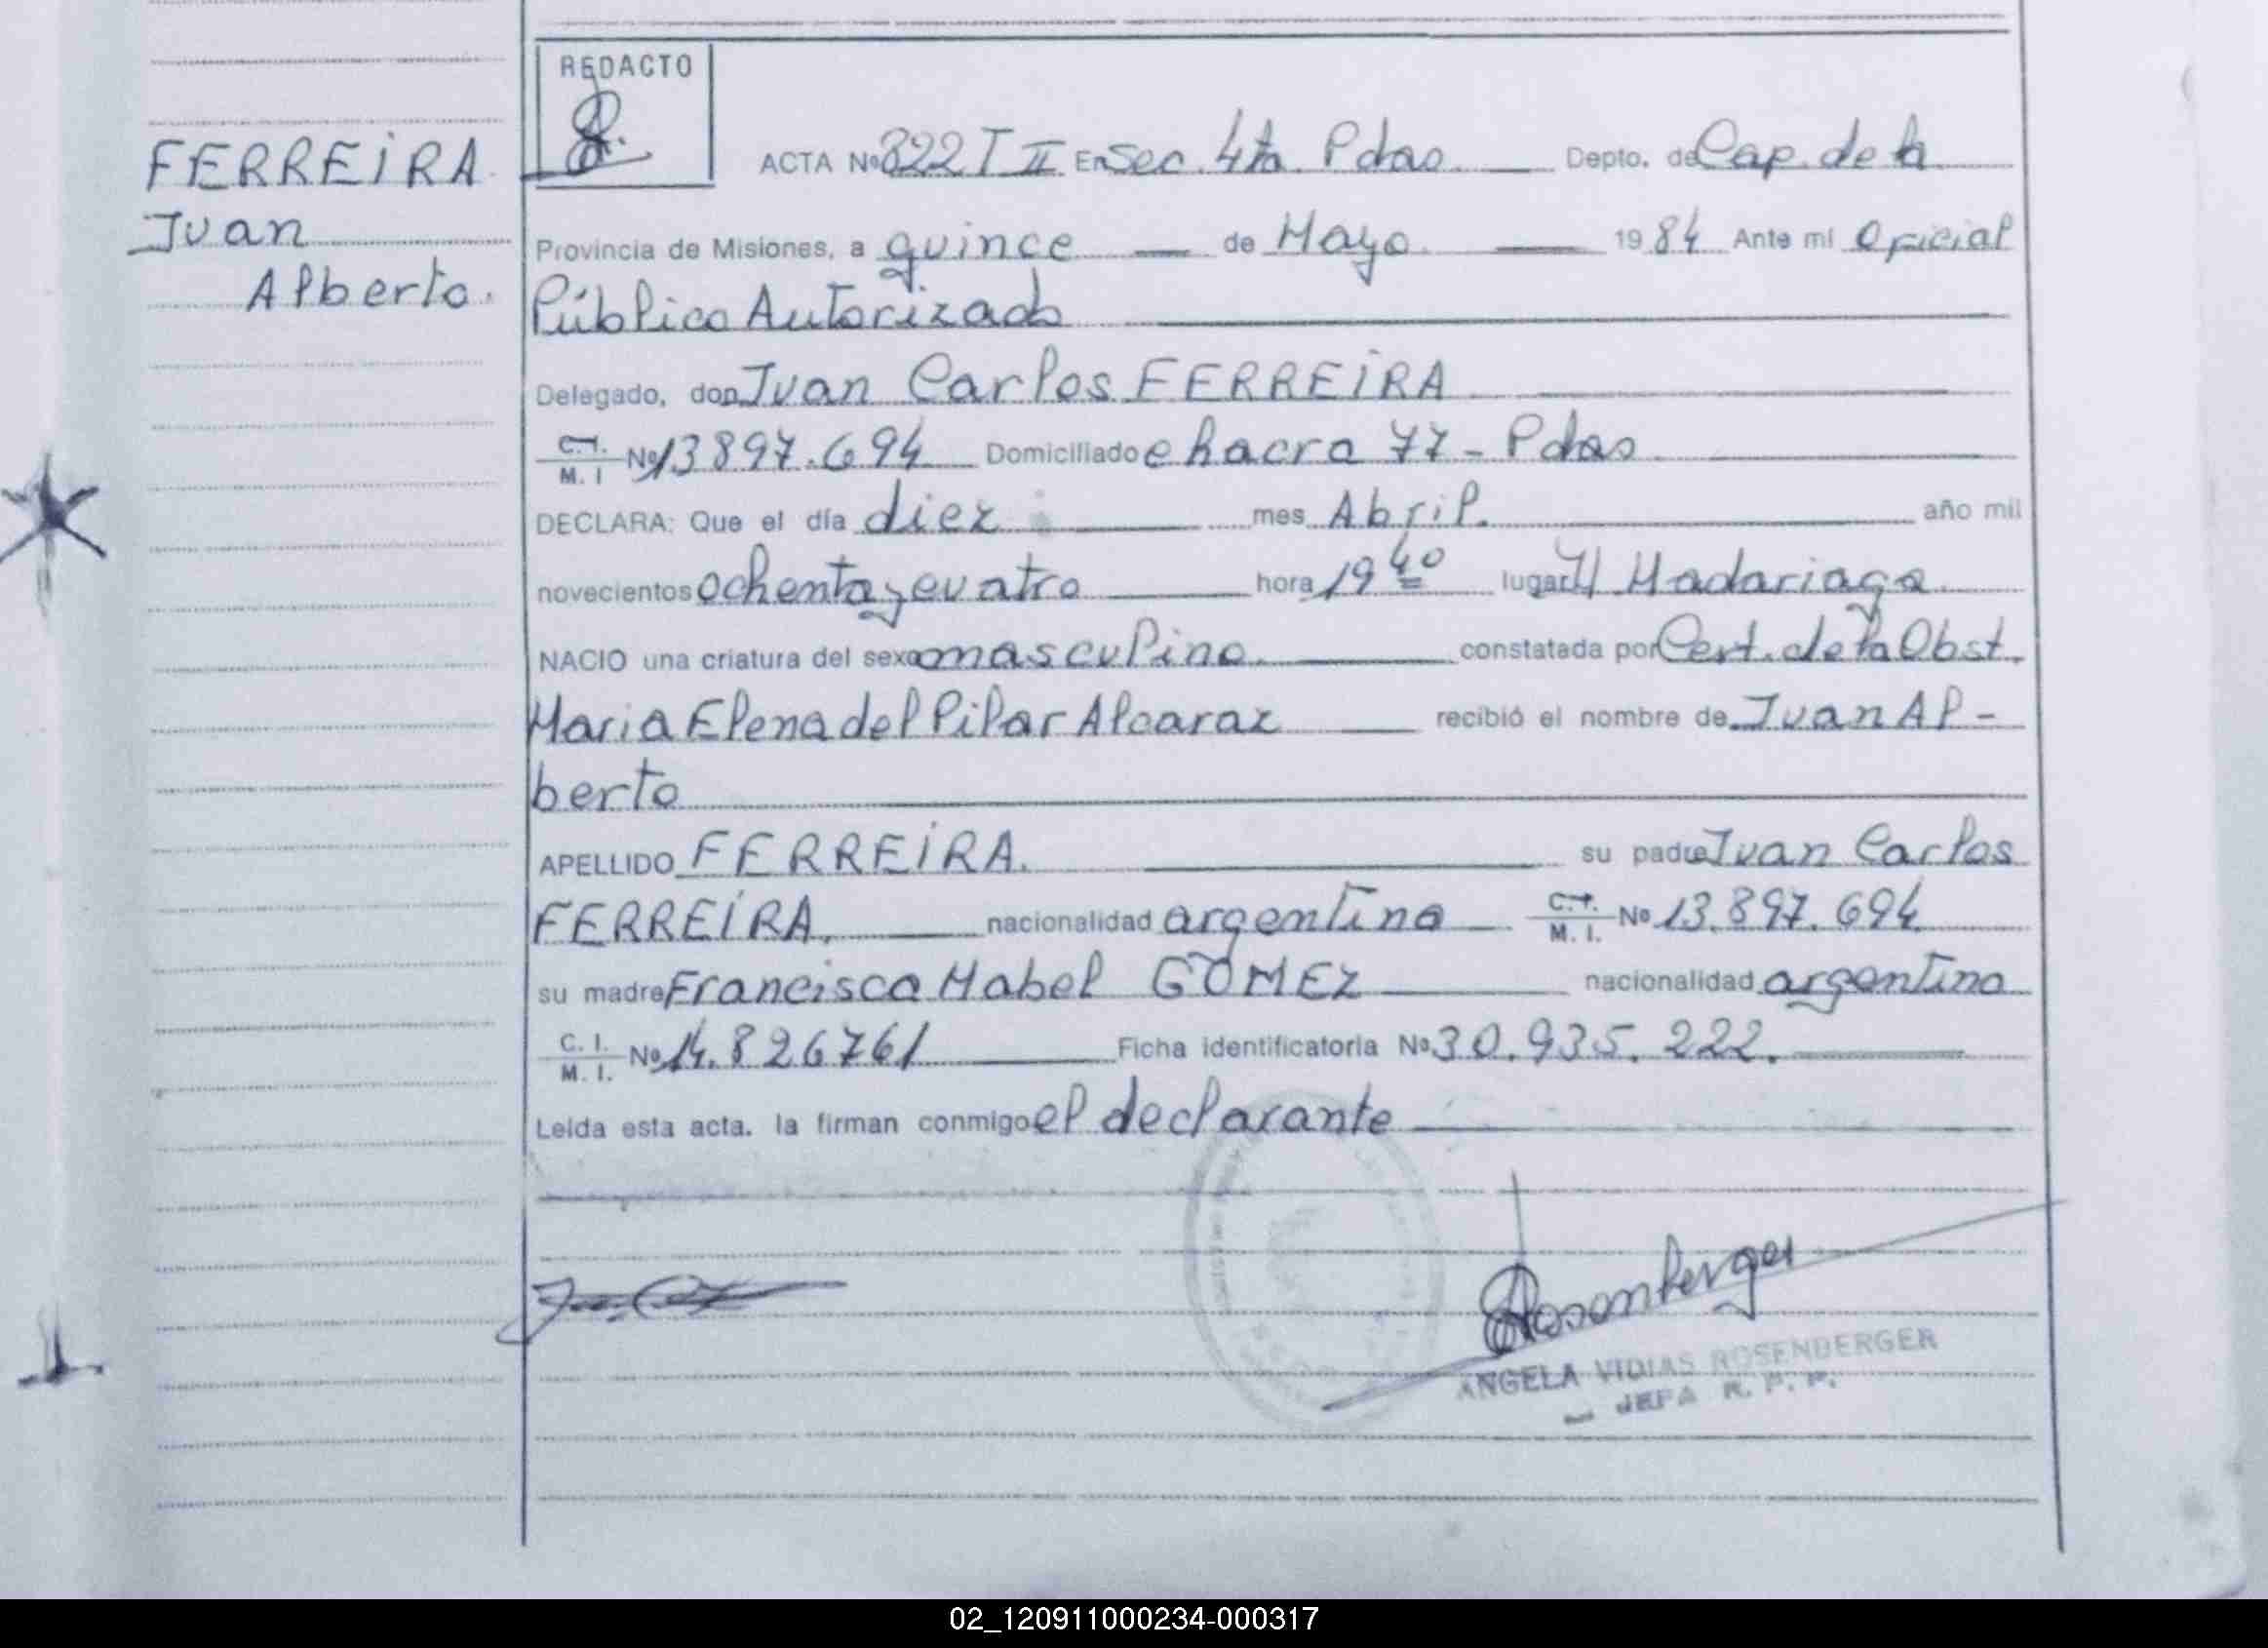 REDACTO
FERREIRA
Juan
Alberto.
ACTA Nº 822 T II En Sec. 4ta. Pdas. Depto. de Cap. de la
Provincia de Misiones, a quince de Mayo. 1984 Ante mí Oficial
Público Autorizado
Delegado, don Juan Carlos FERREIRA
C.I. M. I Nº 13897.694 Domiciliado chacra 77 - Pdas
DECLARA: Que el día diez mes Abril. año mil
novecientos ochenta y cuatro hora 19 40 lugar H Madariaga.
NACIO una criatura del sexo masculino. constatada por Cert. de la Obst.
Maria Elena del Pilar Alcaraz recibió el nombre de Juan Al-
berto
APELLIDO FERREIRA. su padre Juan Carlos
FERREIRA. nacionalidad argentina C.I. M. I. Nº 13.897.694
su madre Francisca Mabel GOMEZ nacionalidad argentina
C. I. M. I. Nº 14.826761 Ficha identificatoria Nº 30.935.222.
Leida esta acta. la firman conmigo el declarante
Rosenberger
ANGELA VIDIAS ROSENBERGER
JEFA R. P. P.
02_120911000234-000317